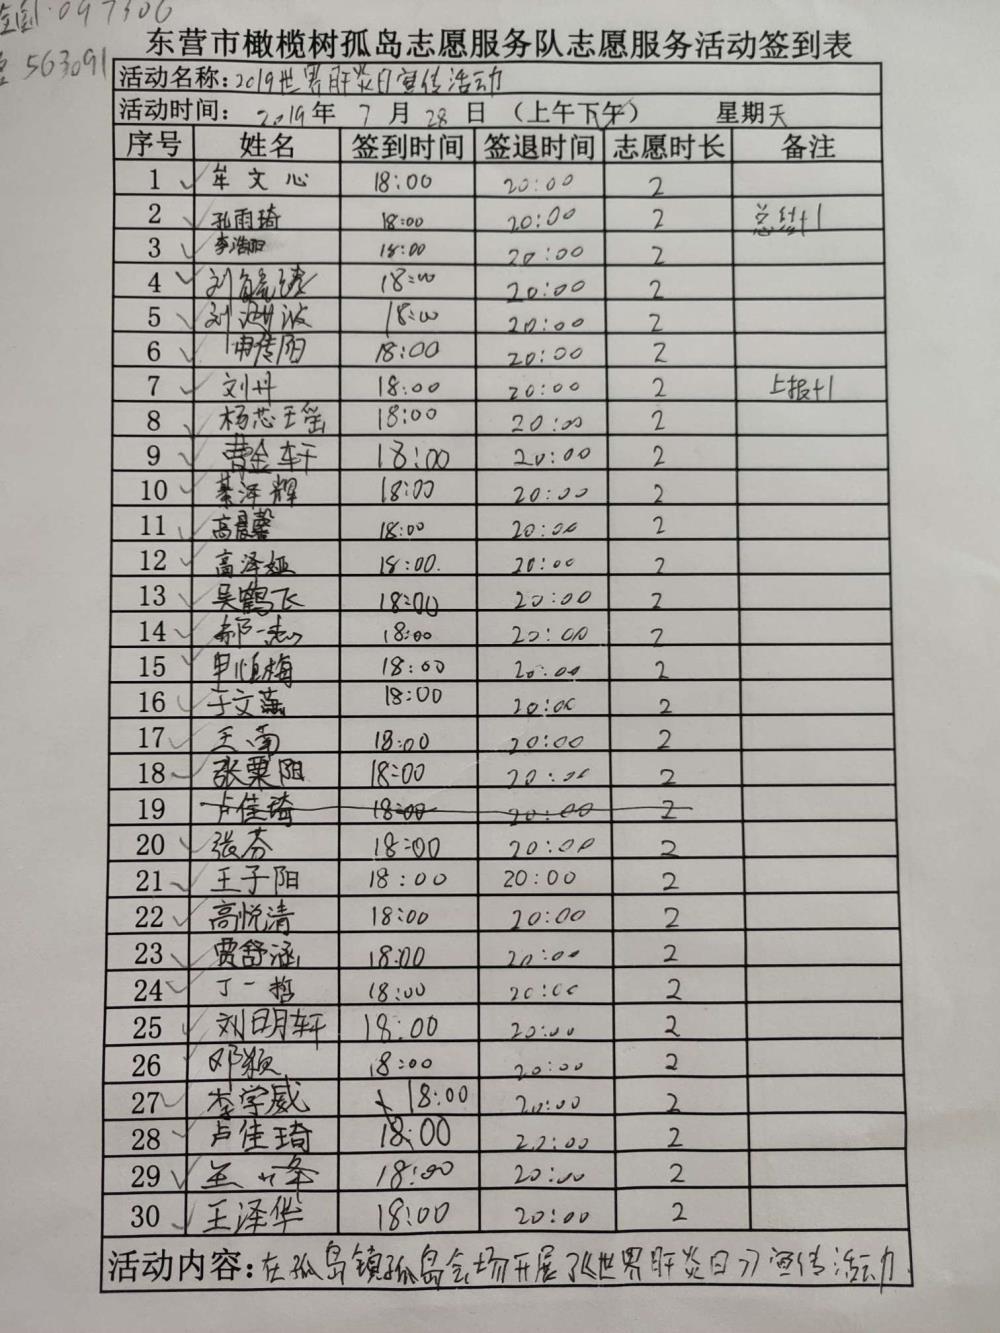 097306
563091
东营市橄榄树孤岛志愿服务队志愿服务活动签到表
活动名称:2019世界肝炎日宣传活动
活动时间: 2019年 7 月 28 日 (上午下午) 星期天
序号 姓名 签到时间 签退时间 志愿时长 备注
1 牟文心 18:00 20:00 2
2 孔雨琦 18:00 20:00 2 总结+1
3 李浩阳 18:00 20:00 2
4 刘 18:00 20:00 2
5 刘 波 18:00 20:00 2
6 申传阳 18:00 20:00 2
7 刘丹 18:00 20:00 2 上报+1
8 杨芯王瑶 18:00 20:00 2
9 曹金轩 18:00 20:00 2
10 綦泽辉 18:00 20:00 2
11 高晨馨 18:00 20:00 2
12 高泽娅 18:00. 20:00 2
13 吴鹤飞 18:00 20:00 2
14 郝一 18:00 20:00 2
15 申恒梅 18:00 20:00 2
16 于文燕 18:00 20:00 2
17 王南 18:00 20:00 2
18 张粟阳 18:00 20:00 2
19 卢佳琦 18:00 20:00 2
20 张芬 18:00 20:00 2
21 王子阳 18:00 20:00 2
22 高悦清 18:00 20:00 2
23 贾舒涵 18:00 20:00 2
24 丁一哲 18:00 20:00 2
25 刘明轩 18:00 20:00 2
26 邓颖 18:00 20:00 2
27 李学威 18:00 20:00 2
28 卢佳琦 18:00 22:00 2
29 18:00 20:00 2
30 王泽华 18:00 20:00 2
活动内容:在孤岛镇孤岛会场开展了《世界肝炎日》宣传活动.